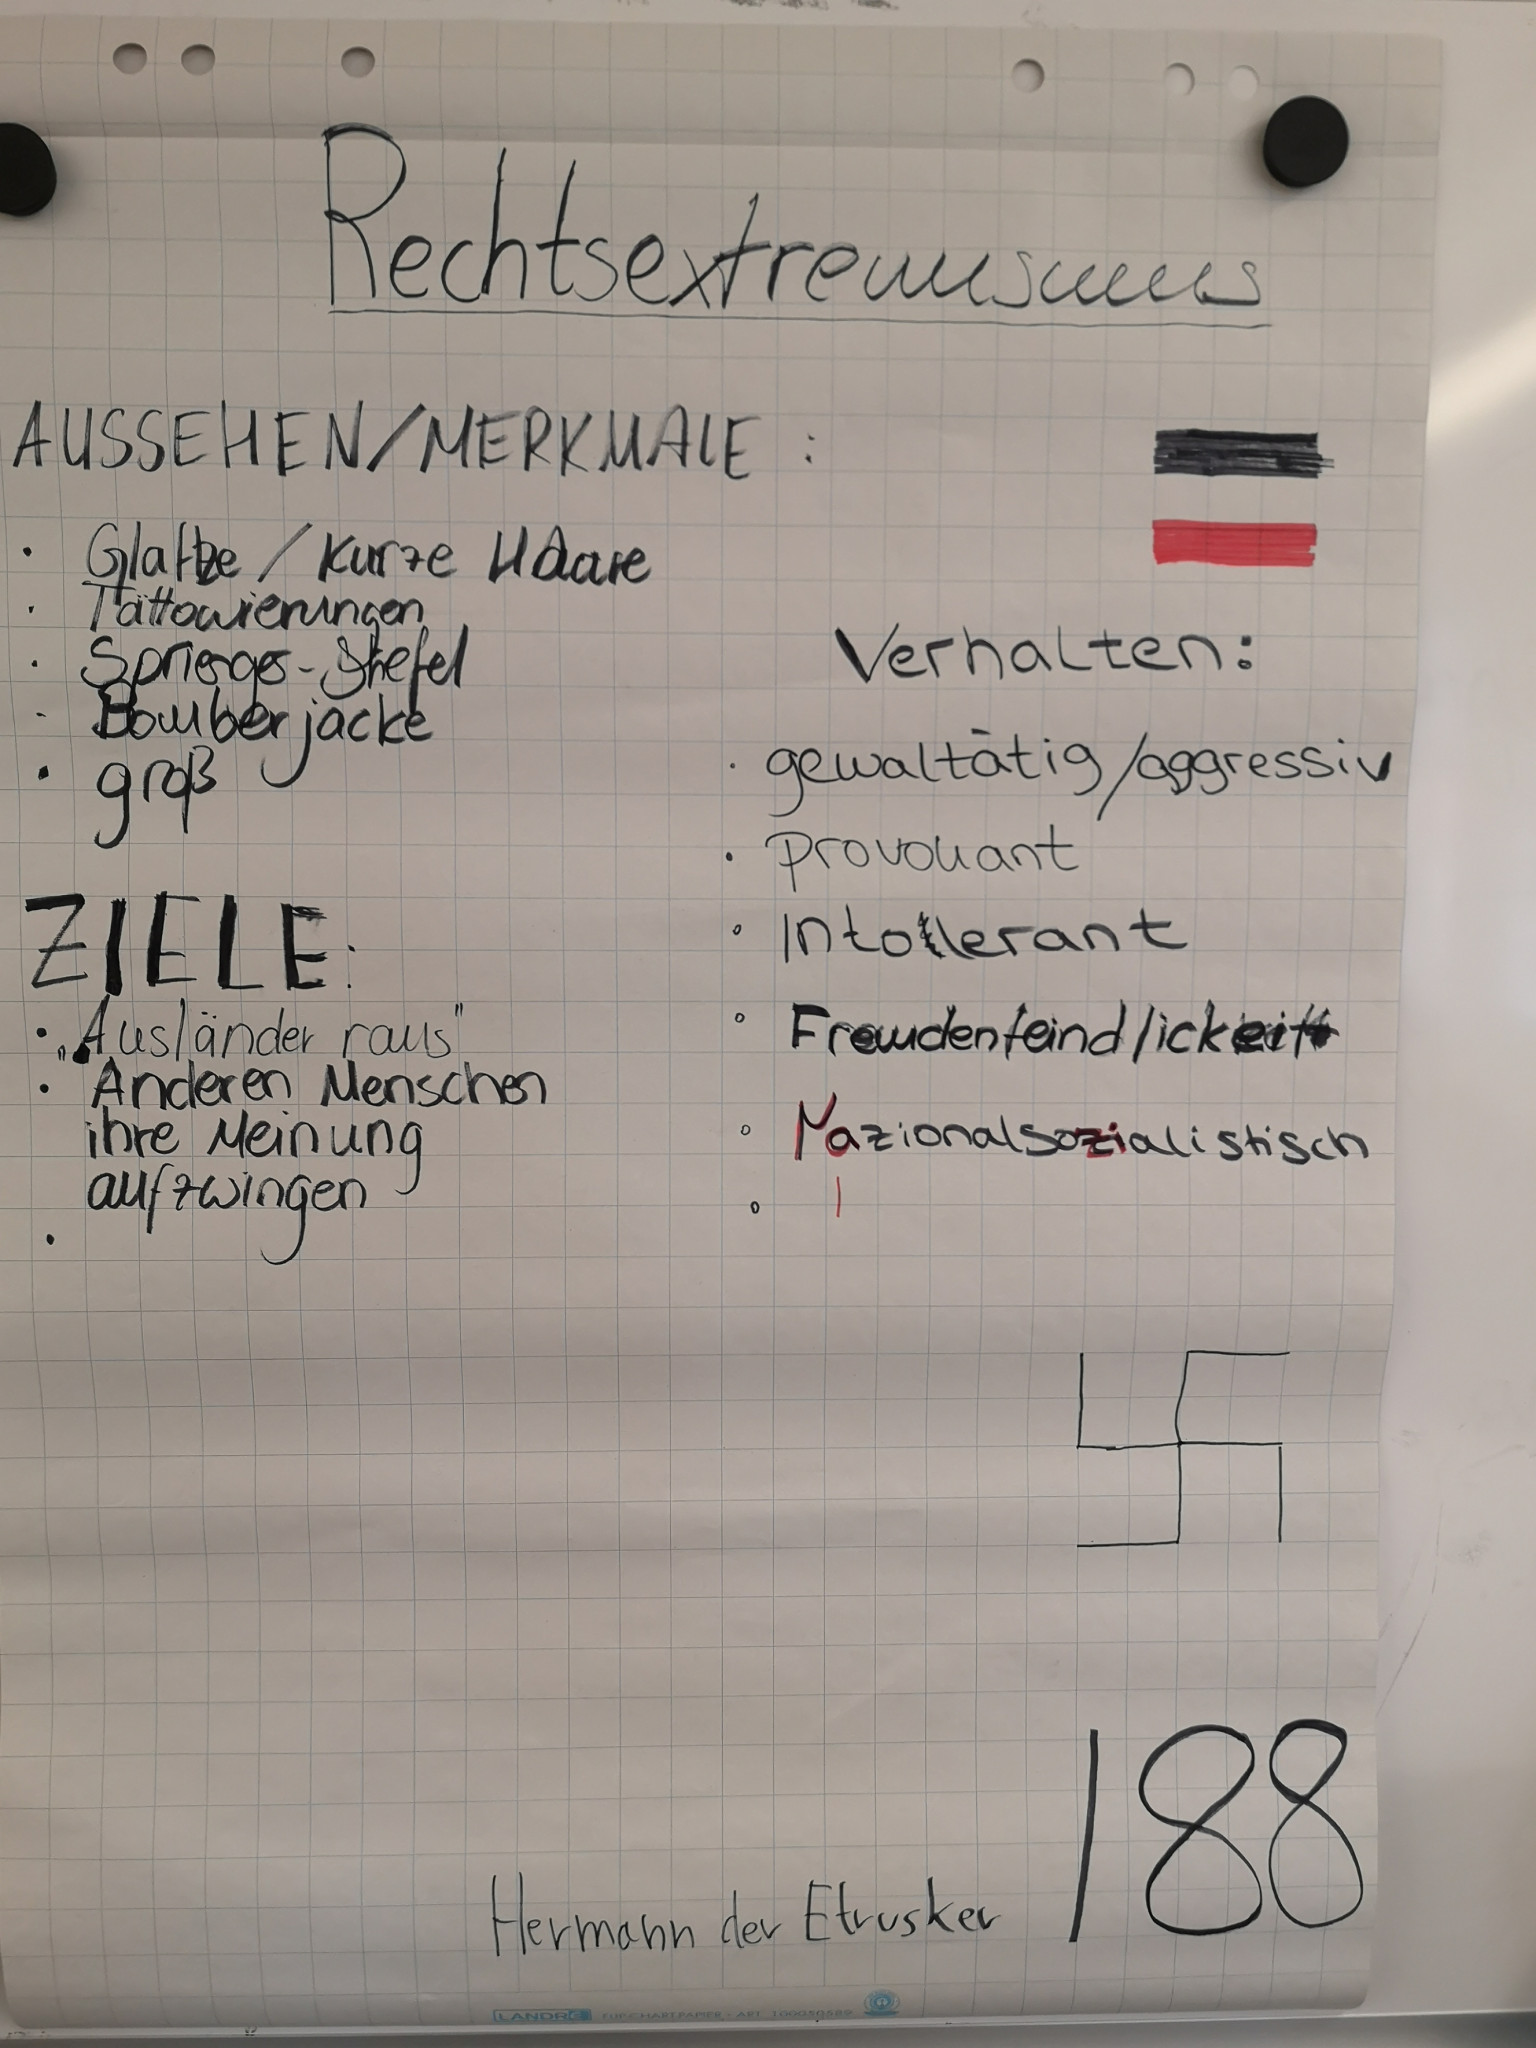 Rechtsextremismus
AUSSEHEN/MERKMALE :
• Glatze / Kurze Haare
• Tattowierungen
• Springer-Stiefel
- Bomberjacke
• groß
ZIELE:
• „Ausländer raus"
• Anderen Menschen
ihre Meinung
aufzwingen
•
Verhalten:
• gewaltätig/aggressiv
• Provokant
• Intollerant
• Fremdenfeindlickeit
• Nazionalsozialistisch
•
188
Hermann der Etrusker
LANDRÉ FLIP-CHARTPAPIER · ART. 100050589